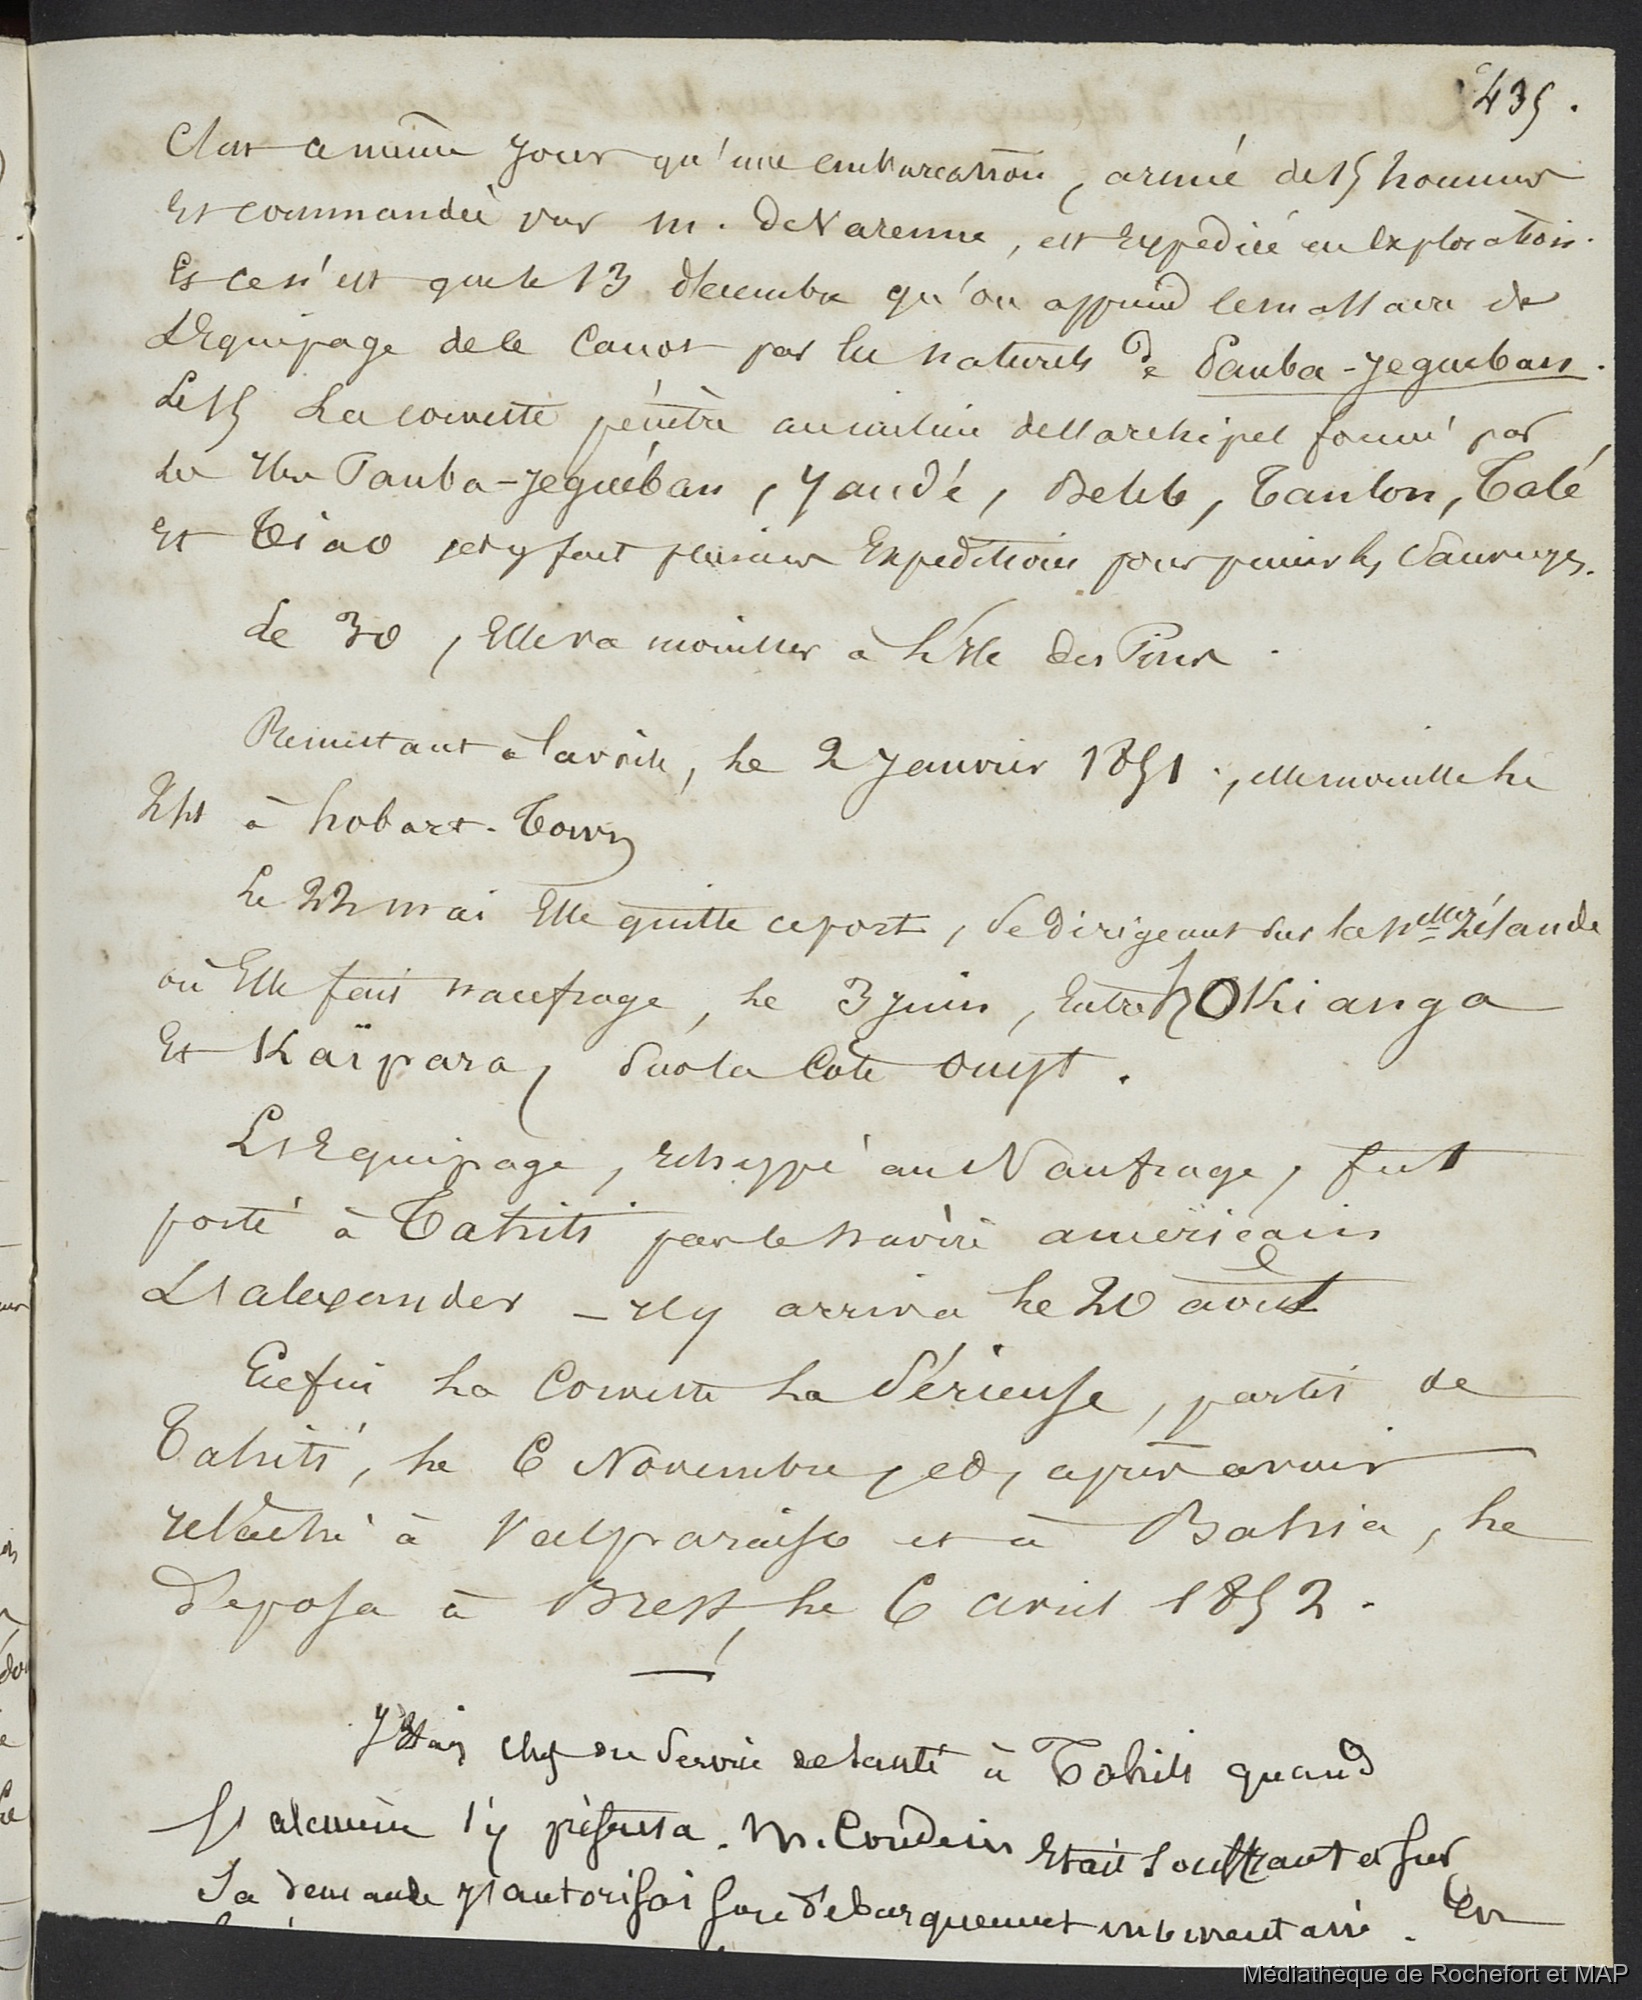 435.
C'est ce même jour qu'une embarcation, armée de 15 hommes
Et commandée par M. de Varenne, est Expédiée en Exploration.
Et ce n'est que le 13 décembre qu'on apprend le massacre de
L'Equipage de ce Canot par les naturels de Pauba-Yeguéban.
Le 15 La corvette pénètre au milieu de l'archipel formé par
les Iles Pauba-Yeguéban, Yandé, Belep, Tanlon, Talé
Et Tiao et y fait plusieurs Expéditions pour punir les Sauvages.
Le 30, Elle va mouiller à L'Ile des Pins.
Remettant à la voile, le 2 Janvier 1851., elle mouille le
24 à hobart-Town
Le 22 mai Elle quitte ce port, se dirigeant sur la Nelle Zélande
où Elle fait naufrage, le 3 Juin, Entre hOKianga
Et Kaïpara, sur la Côte Ouest.
L'Equipage, échappé au Naufrage, fut
porté à Tahiti par le navire américain
L'alexander – Il y arriva le 20 août
Enfin la Corvette La Sérieuse, partit de
Tahiti, le 6 Novembre, et, après avoir
relâché à Valparaiso et à Bahia, le
déposa à Brest, le 6 avril 1852.
J'Etais chef du Service de santé à Tahiti quand
l'alcmène s'y présenta. M. Coudein Etait Souffrant et sur
Sa demande J'autorisai son débarquement momentané. En
Médiathèque de Rochefort et MAP